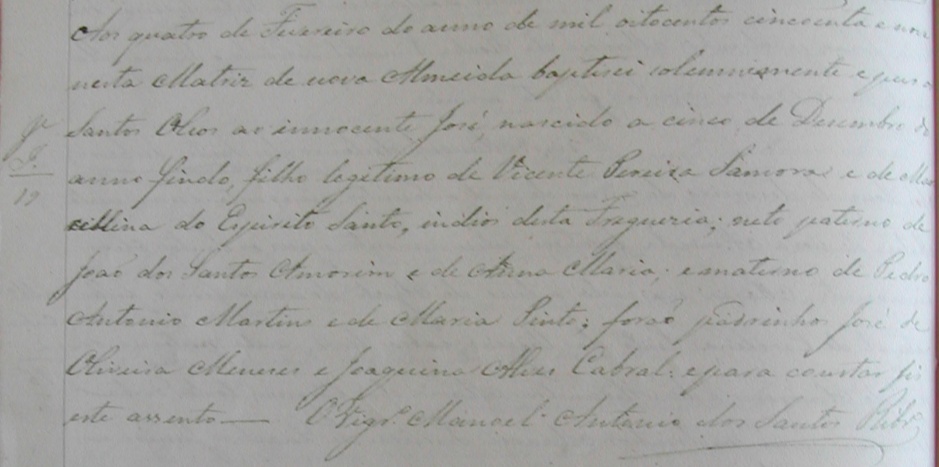 Aos quatro de Fevereiro do anno de mil oitocentos cincoenta e nove
nesta Matriz de nova Almeida baptisei solemnemente e pus os
Santos Oleos ao innocente José, nascido a cinco de Desembro do
anno findo, filho legetimo de Vicente Pereira Samora e de Mar
cillina do Espirito Santo, indios desta Freguezia; neto paterno de
João dos Santos Amorim e de Anna Maria; e materno de Pedro
Antonio Martins e de Maria Pinto; forão padrinhos José de
Oliveira Meneses e Joaquina Alves Cabral: e para constar fis
este assento — O Vigr.º Manoel Antonio dos Santos Ribr.º
J.
19